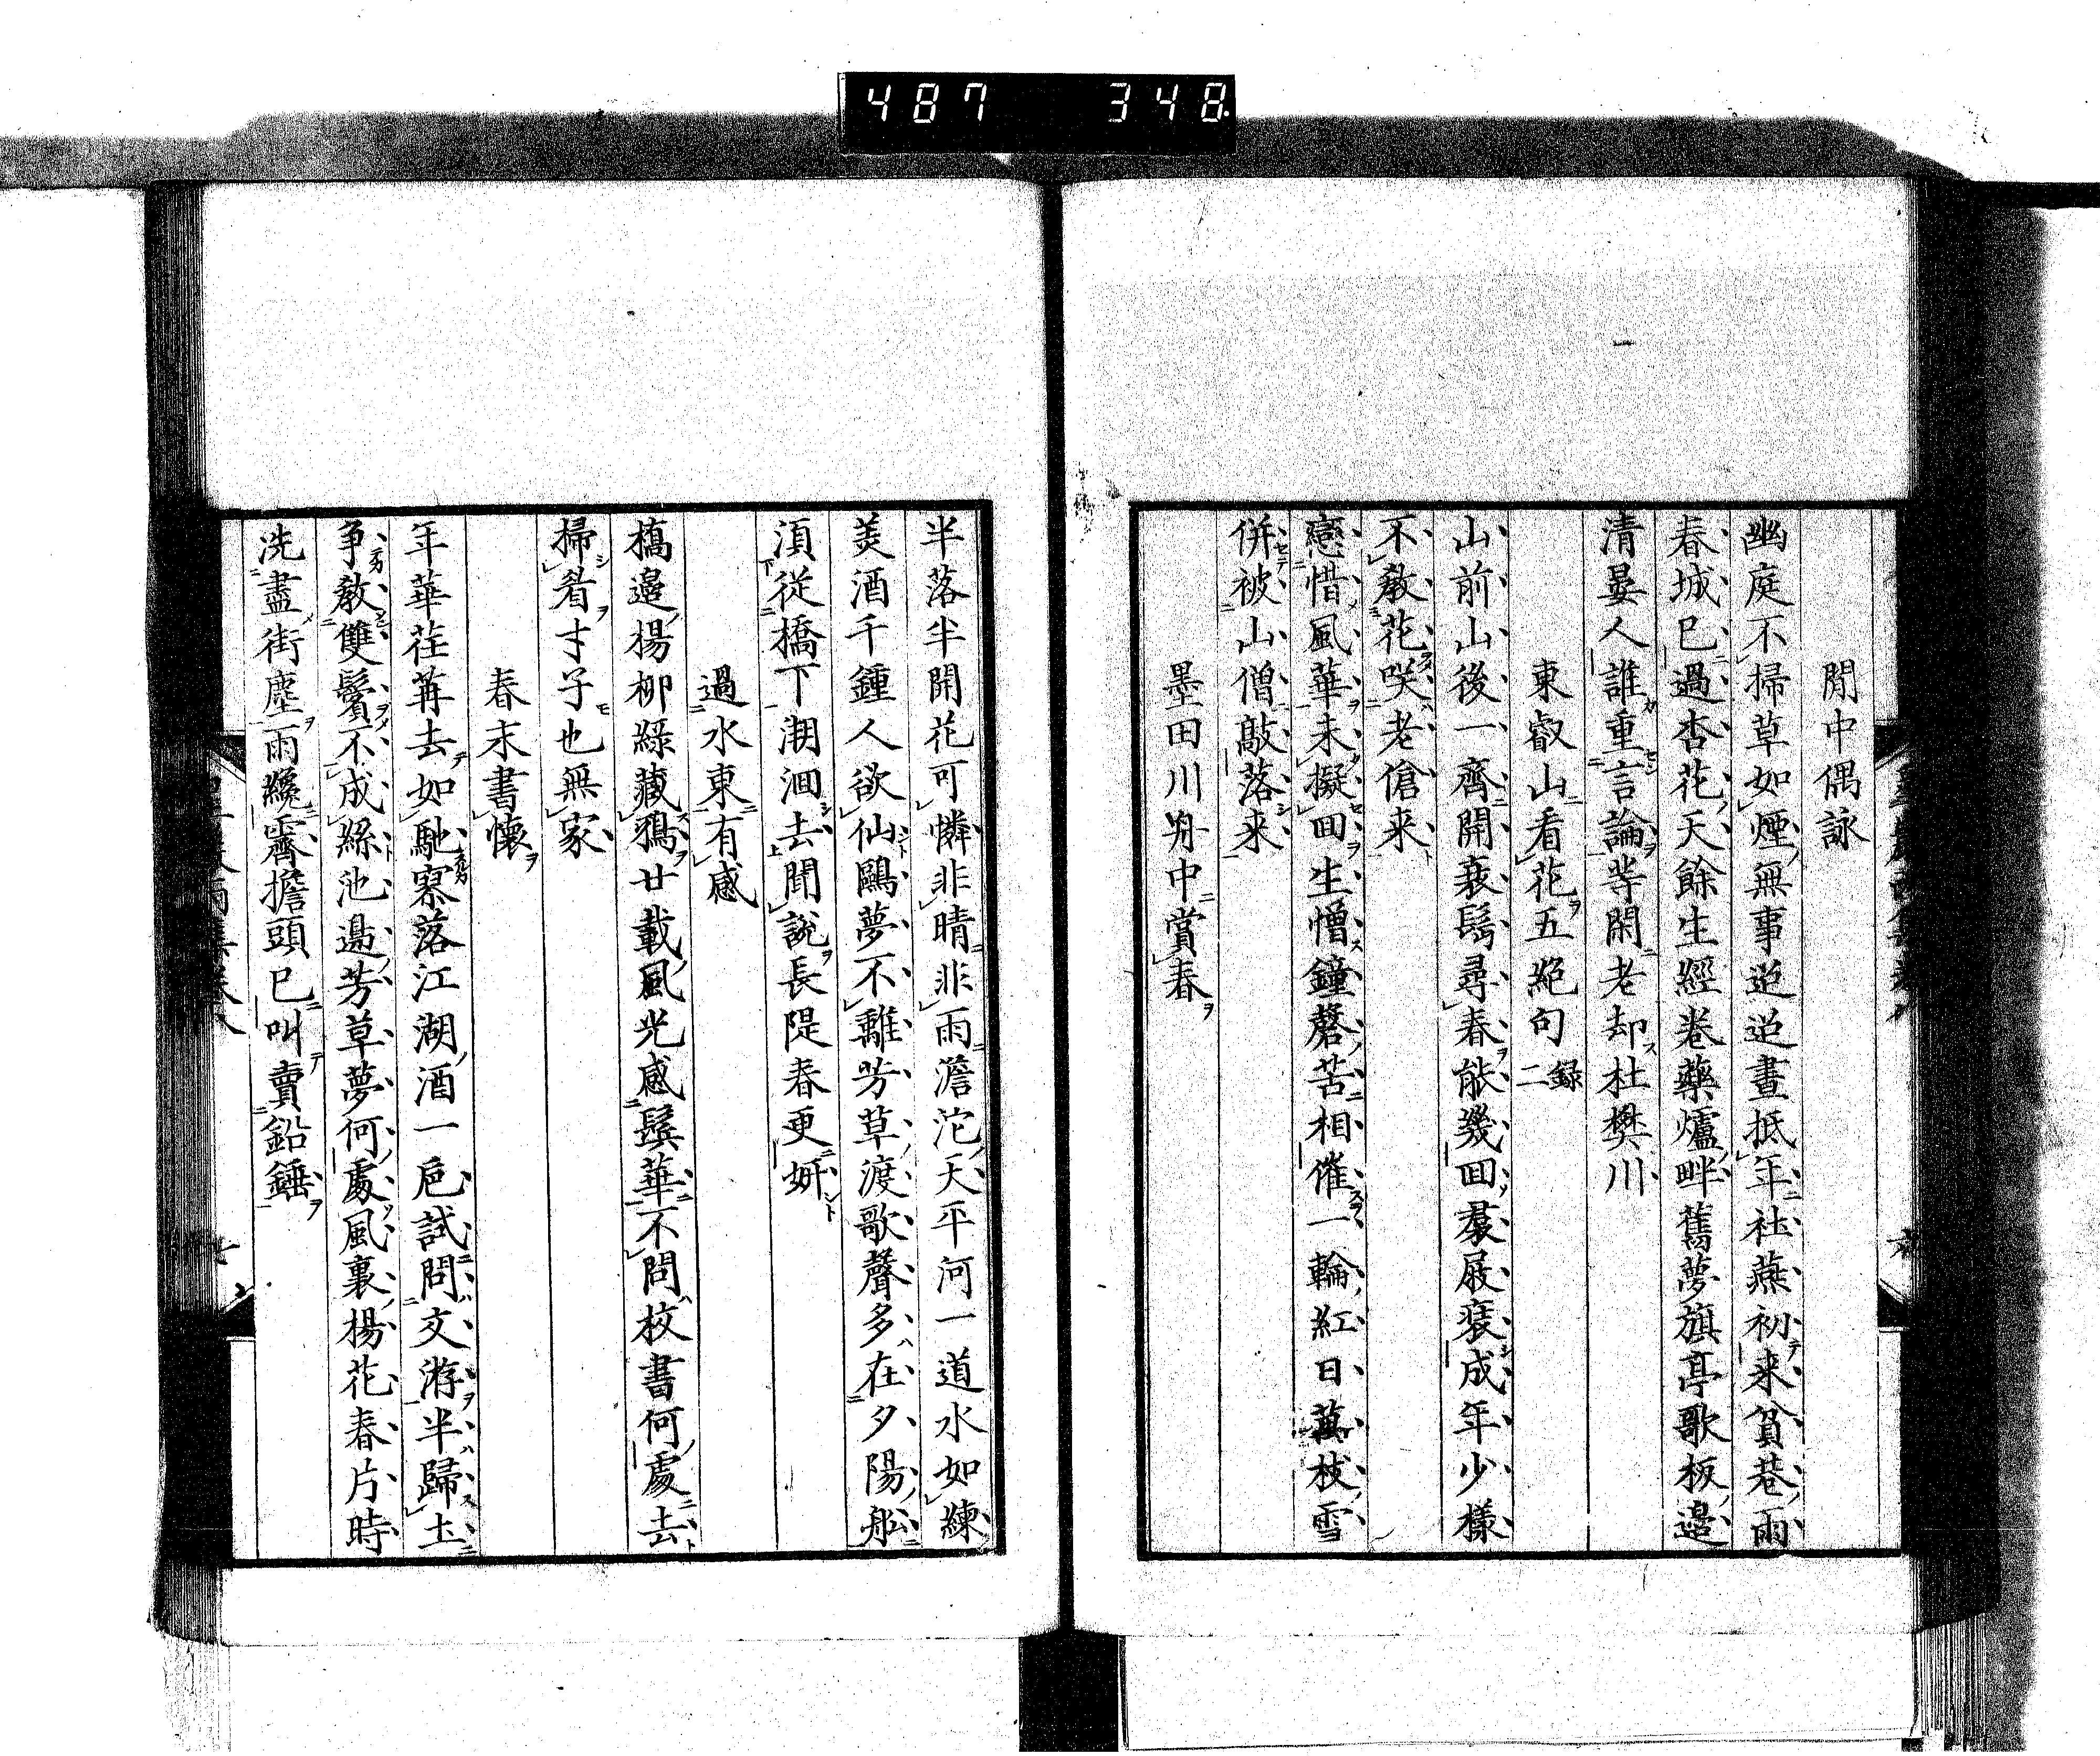 487 348
閒中偶詠
幽庭不掃草如煙無事迢迢晝抵年社燕初来貧巷雨
春城已過杏花天餘生經卷藥爐畔舊夢旗亭歌板邊
清晏人誰重言論等閑老却杜樊川
東叡山看花五絶句 録二
山前山後一齊開衰髩尋春能幾回羣屐裒成年少樣
不教花咲老傖来
戀惜風華未擬回生憎鐘磬苦相催一輪紅日萬枝雪
併被山僧敲落来
墨田川舟中賞春
半落半開花可憐非晴非雨澹沱天平河一道水如練
美酒千鍾人欲仙鷗夢不離芳草渡歌聲多在夕陽船
須從橋下溯洄去聞說長隄春更妍
過水東有感
橋邉楊柳綠藏鴉廿載風光感鬂華不問校書何處去
掃眉才子也無家
春末書懷
年華荏苒去如馳寥落江湖酒一巵試問文游半歸土
争教雙鬢不成絲池邉芳草夢何處風裏楊花春片時
洗盡街塵雨纔霽擔頭已叫賣鉛錘